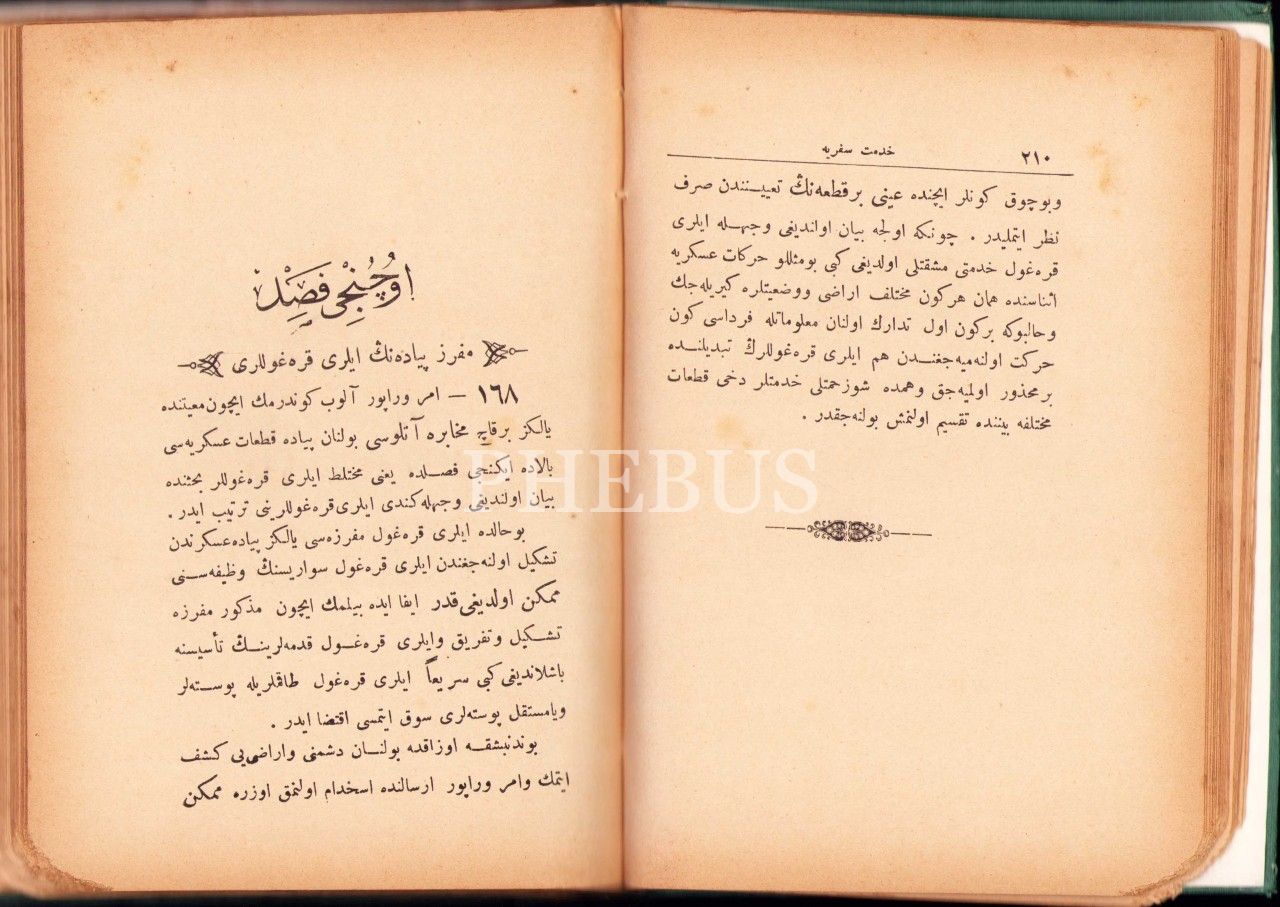 ٢١٠ خدمت سفريه
وبوچوق كونلر ايچنده عينى برقطعه‌نڭ تعييننندن صرف
نظر ايتمليدر . چونكه اولجه بيان اولنديغى وجهله ايلرى
قره‌غول خدمتى مشقتلى اولديغى كبى بومثللو حركات عسكريه
اثناسنده همان هركون مختلف اراضى ووضعيتلره كيريله‌جك
وحالبوكه بركون اول تدارك اولنان معلوماتله فرداسى كون
حركت اولنه‌ميه‌جغندن هم ايلرى قره‌غوللرڭ تبديلنده
برمحذور اولميه‌جق وهمده شوزحمتلى خدمتلر دخى قطعات
مختلفه بيننده تقسيم اولنمش بولنه‌جقدر .
اوچنجى فصل
مفرز پياده‌نڭ ايلرى قره‌غوللارى
١٦٨ — امر وراپور آلوب كوندرمك ايچون معيتنده
يالكز برقاچ مخابره آتلوسى بولنان پياده قطعات عسكريه‌سى
بالاده ايكنجى فصلده يعنى مختلط ايلرى قره‌غوللر بحثنده
بيان اولنديغى وجهله كندى ايلرى قره‌غوللرينى ترتيب ايدر .
بوحالده ايلرى قره‌غول مفرزه‌سى يالكز پياده عسكرندن
تشكيل اولنه‌جغندن ايلرى قره‌غول سواريسنڭ وظيفه‌سنى
ممكن اولديغى قدر ايفا ايده بيلمك ايچون مذكور مفرزه
تشكيل وتفريق وايلرى قره‌غول قدمه‌لرينڭ تأسيسنه
باشلانديغى كبى سريعاً ايلرى قره‌غول طاقملريله پوسته‌لر
ويامستقل پوسته‌لرى سوق ايتمسى اقتضا ايدر .
بوندنبشقه اوزاقده بولنان دشمنى واراضى‌يى كشف
ايتمك وامر وراپور ارسالنده اسخدام اولنمق اوزره ممكن
PHEBUS